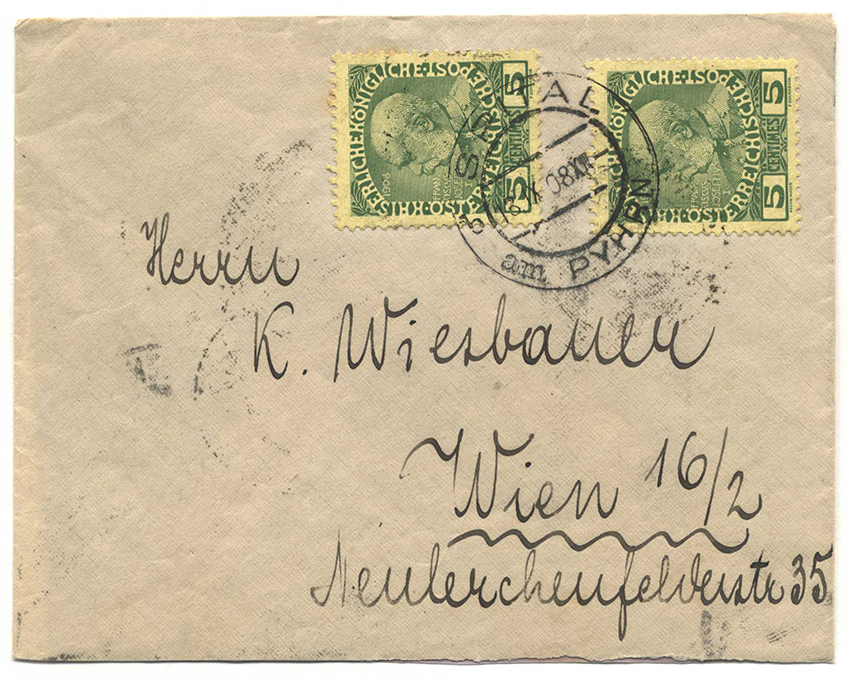 KAISERLICHE KÖNIGLICHE
ÖSTERREICHISCHE POST
5 CENTIMES 5
1908
KAISERLICHE KÖNIGLICHE
ÖSTERREICHISCHE POST
5 CENTIMES 5
SPITAL
am PYHRN
Herrn
K. Wiesbauer
Wien 16/2
Neulerchenfelderstr 35